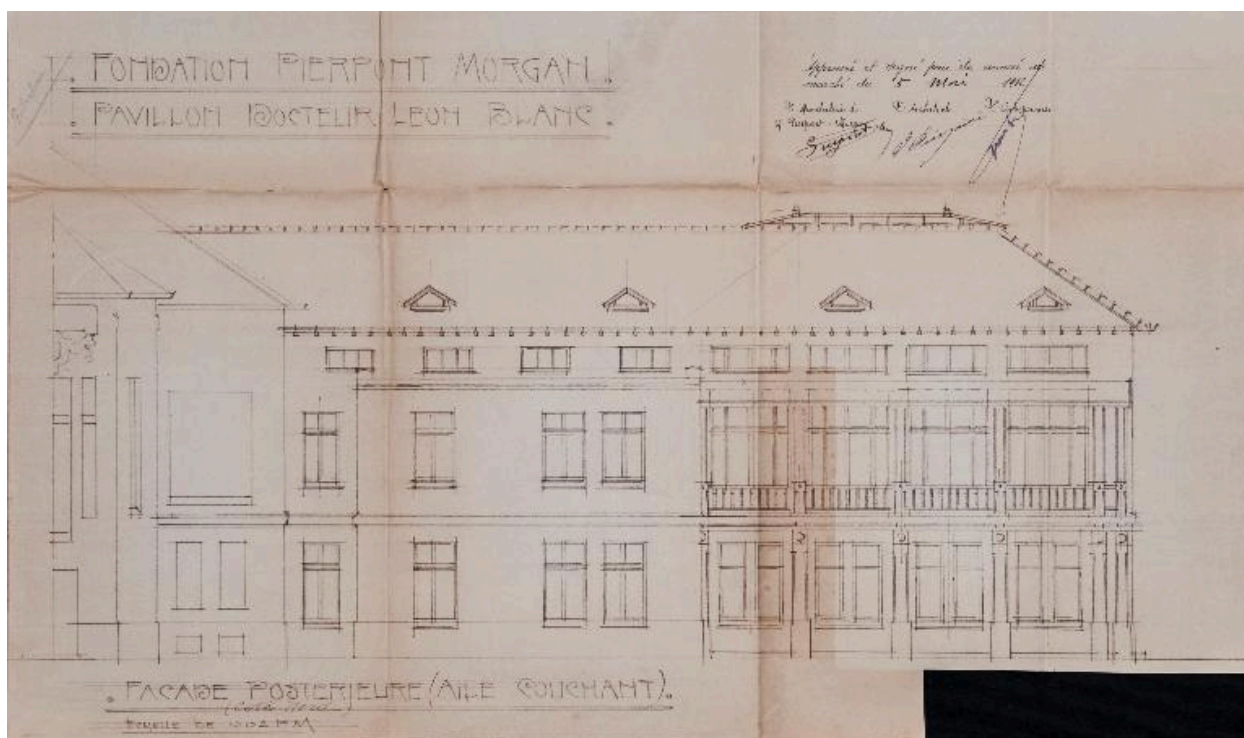 . FONDATION PIERPONT MORGAN .
. PAVILLON DOCTEUR LEON BLANC .
Approuvé et signé pour être annexé au
marché du 5 Mars 1912
L'Architecte
. FACADE POSTERIEURE (AILE COUCHANT).
(Coté Nord)
ECHELLE DE 0.02 P M